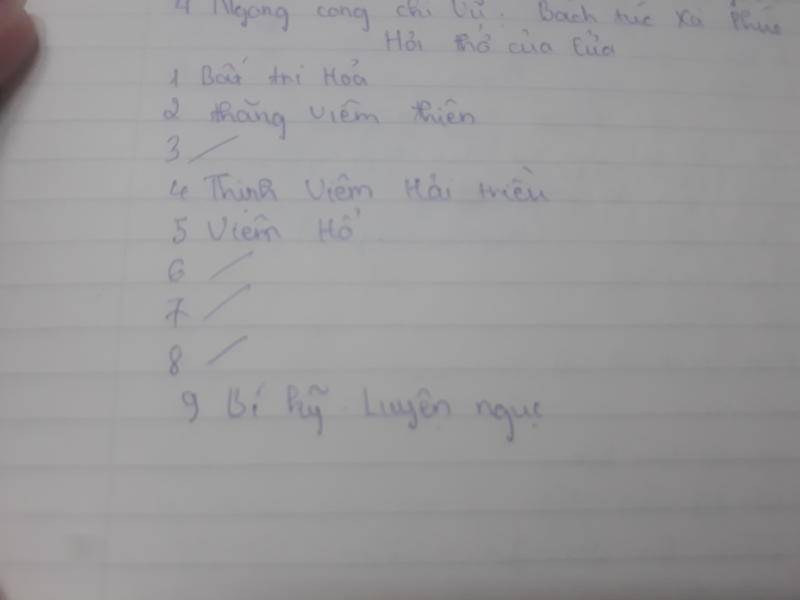 4 Ngang cong chi Vũ. Bách túc xà Phức
Hỏi thở của Lửa
1 Bất tri Hoả
2 thăng viêm thiên
3 /
4 Thịnh Viêm Hải triều
5 Viêm Hổ
6 /
7 /
8 /
9 Bí kỹ Luyện ngục